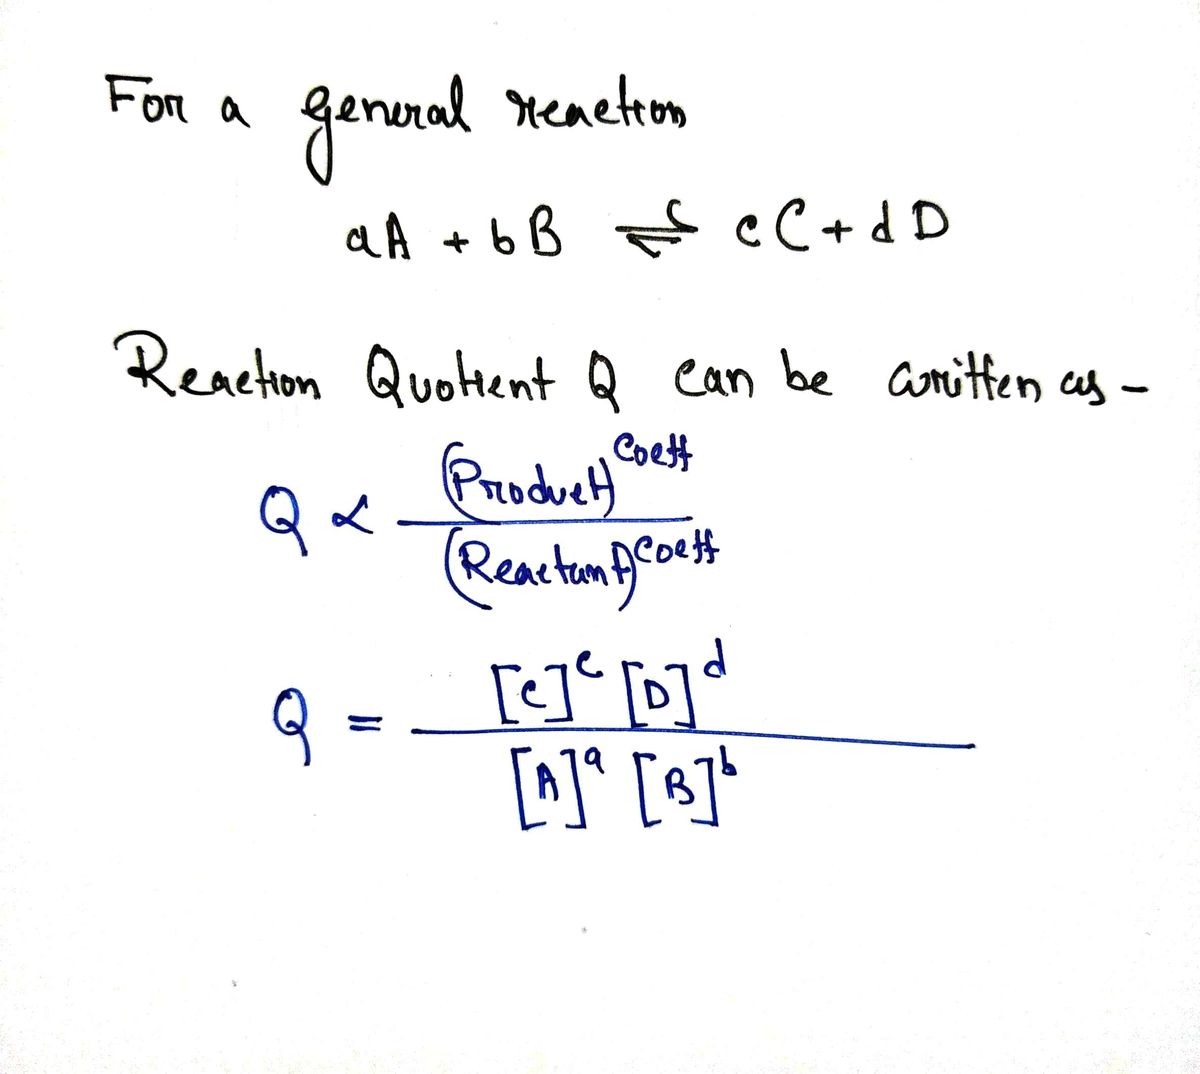 For a general reaction
aA + bB ⇌ cC + dD
Reaction Quotient Q can be written as -
Q ∝ (Product)^Coeff / (Reactant)^Coeff
Q = [C]^c [D]^d / [A]^a [B]^b